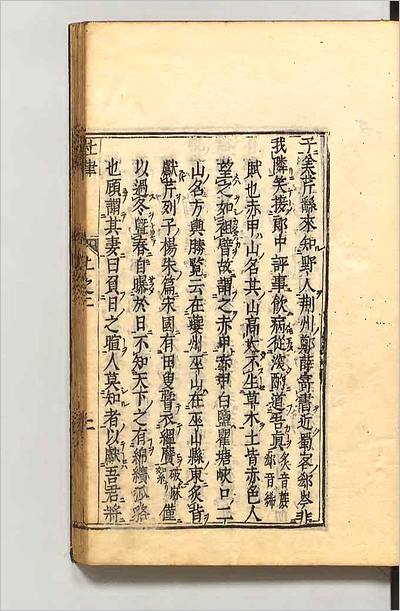 子美芹繇來知野人荆州鄭薛寄書近蜀客郄岑非
我隣笑接郎中評事飲病從深酌道吾真炙音蔗郄音絺
賦也赤甲山名其山高大不生草木土皆赤色人
望之如袒臂故謂之赤甲赤甲白鹽瞿塘峽口二
山名方輿勝覽云在夔州巫山在巫山縣東炙背
獻芹列子楊朱篇宋國有田叟甞衣緼黂破麻僅
以過冬曁春自曝於日不知天下之有綿纊狐貉
也顧謂其妻曰負日之暄人莫知者以獻吾君將
杜律